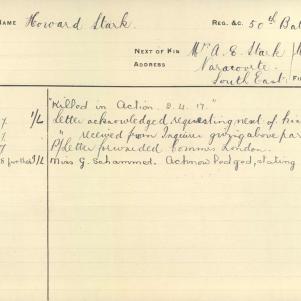 NAME Howard Stark. REG. &C. 50th Bat
NEXT OF KIN Mrs A. E. Stark
ADDRESS Naracoorte.
South East
"Killed in Action. 2.4.17."
1/L Letter acknowledged, requesting next of kin
" received from Inquirer giving above par
Pfletter forwarded Commrs London.
1/L Miss G. Sahammed. Acknowledged, stating